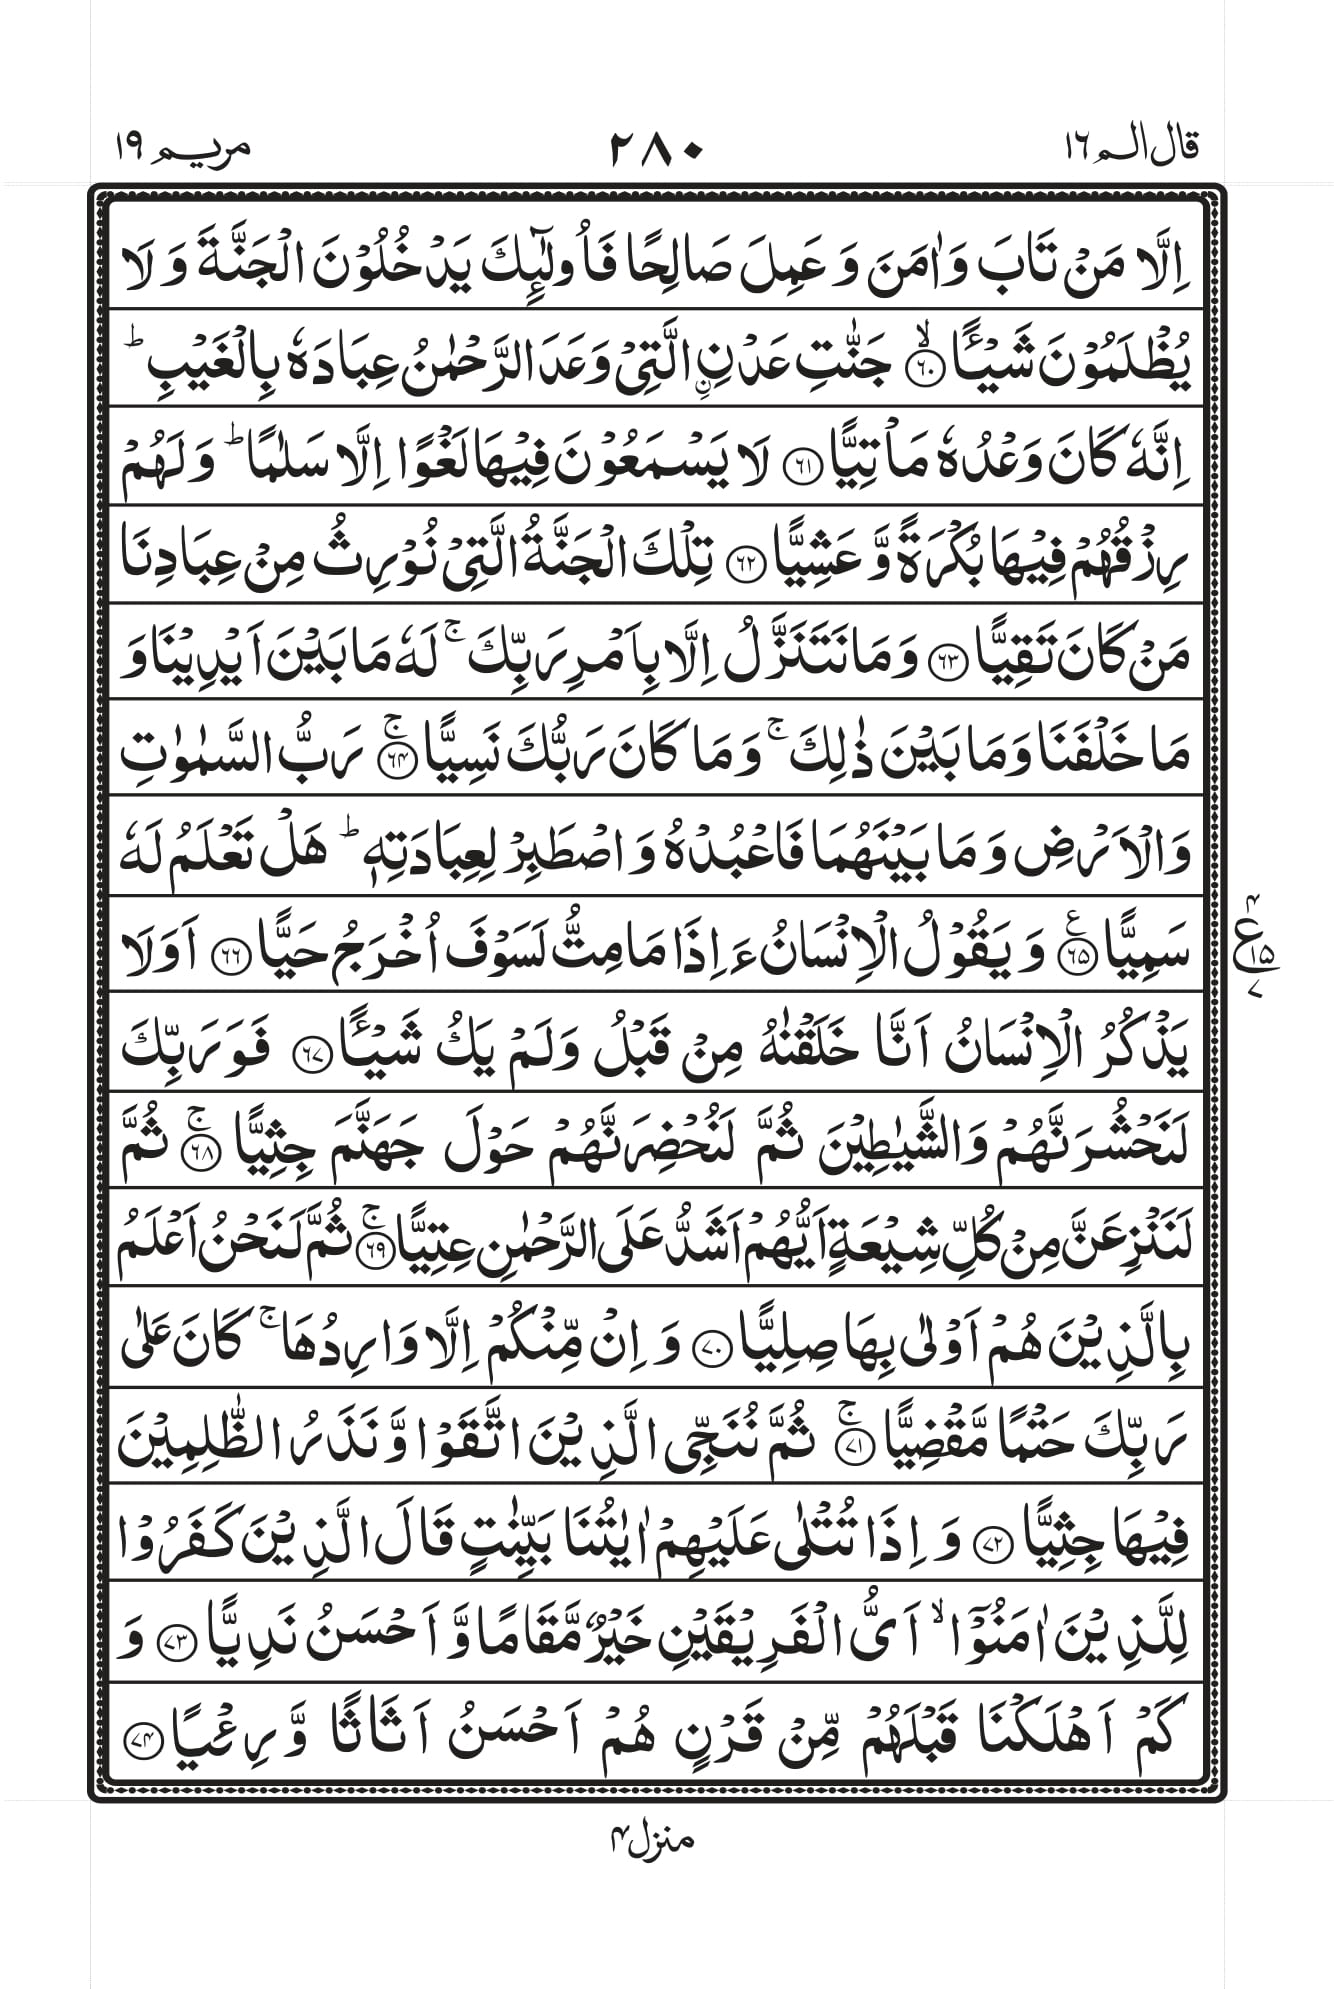 قال الم ۱۶
۲۸۰
مریم ۱۹
اِلَّا مَنْ تَابَ وَاٰمَنَ وَ عَمِلَ صَالِحًا فَاُولٰٓئِكَ يَدْخُلُوْنَ الْجَنَّةَ وَ لَا
يُظْلَمُوْنَ شَيْـًٔا ۙ﴿۶۰﴾ جَنّٰتِ عَدْنِ ۨ الَّتِيْ وَعَدَ الرَّحْمٰنُ عِبَادَهٗ بِالْغَيْبِ ؕ
اِنَّهٗ كَانَ وَعْدُهٗ مَاْتِيًّا ﴿۶۱﴾ لَا يَسْمَعُوْنَ فِيْهَا لَغْوًا اِلَّا سَلٰمًا ؕ وَلَهُمْ
رِزْقُهُمْ فِيْهَا بُكْرَةً وَّ عَشِيًّا ﴿۶۲﴾ تِلْكَ الْجَنَّةُ الَّتِيْ نُوْرِثُ مِنْ عِبَادِنَا
مَنْ كَانَ تَقِيًّا ﴿۶۳﴾ وَمَا نَتَنَزَّلُ اِلَّا بِاَمْرِ رَبِّكَ ۚ لَهٗ مَا بَيْنَ اَيْدِيْنَا وَ
مَا خَلْفَنَا وَمَا بَيْنَ ذٰلِكَ ۚ وَمَا كَانَ رَبُّكَ نَسِيًّا ۚ﴿۶۴﴾ رَبُّ السَّمٰوٰتِ
وَالْاَرْضِ وَمَا بَيْنَهُمَا فَاعْبُدْهُ وَاصْطَبِرْ لِعِبَادَتِهٖ ؕ هَلْ تَعْلَمُ لَهٗ
سَمِيًّا ﴿۶۵﴾ ع وَيَقُوْلُ الْاِنْسَانُ ءَاِذَا مَا مِتُّ لَسَوْفَ اُخْرَجُ حَيًّا ﴿۶۶﴾ اَوَلَا
۴ ع ۱۵ ۷
يَذْكُرُ الْاِنْسَانُ اَنَّا خَلَقْنٰهُ مِنْ قَبْلُ وَلَمْ يَكُ شَيْـًٔا ﴿۶۷﴾ فَوَرَبِّكَ
لَنَحْشُرَنَّهُمْ وَالشَّيٰطِيْنَ ثُمَّ لَنُحْضِرَنَّهُمْ حَوْلَ جَهَنَّمَ جِثِيًّا ۚ﴿۶۸﴾ ثُمَّ
لَنَنْزِعَنَّ مِنْ كُلِّ شِيْعَةٍ اَيُّهُمْ اَشَدُّ عَلَى الرَّحْمٰنِ عِتِيًّا ۚ﴿۶۹﴾ ثُمَّ لَنَحْنُ اَعْلَمُ
بِالَّذِيْنَ هُمْ اَوْلٰى بِهَا صِلِيًّا ﴿۷۰﴾ وَ اِنْ مِّنْكُمْ اِلَّا وَارِدُهَا ۚ كَانَ عَلٰى
رَبِّكَ حَتْمًا مَّقْضِيًّا ۚ﴿۷۱﴾ ثُمَّ نُنَجِّي الَّذِيْنَ اتَّقَوْا وَّ نَذَرُ الظّٰلِمِيْنَ
فِيْهَا جِثِيًّا ﴿۷۲﴾ وَ اِذَا تُتْلٰى عَلَيْهِمْ اٰيٰتُنَا بَيِّنٰتٍ قَالَ الَّذِيْنَ كَفَرُوْا
لِلَّذِيْنَ اٰمَنُوْٓا ۙ اَيُّ الْفَرِيْقَيْنِ خَيْرٌ مَّقَامًا وَّ اَحْسَنُ نَدِيًّا ﴿۷۳﴾ وَ
كَمْ اَهْلَكْنَا قَبْلَهُمْ مِّنْ قَرْنٍ هُمْ اَحْسَنُ اَثَاثًا وَّ رِءْيًا ﴿۷۴﴾
منزل ۴